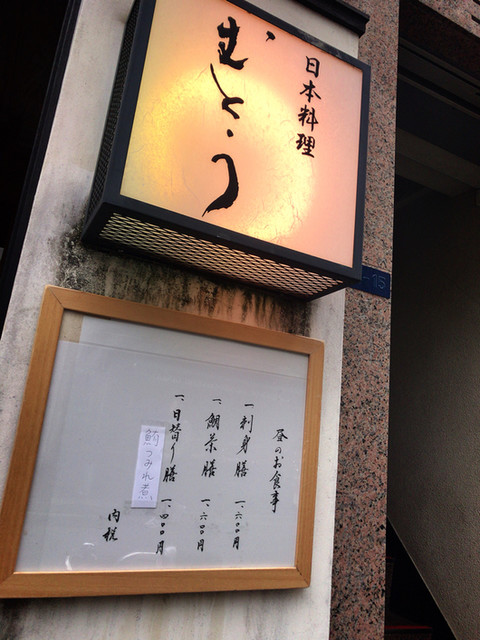 日本料理
むとう
15
昼のお食事
一、刺身膳 一、六〇〇円
一、鯛茶膳 一、六〇〇円
一、日替り膳 一、四〇〇円
鰯つみれ煮
内税